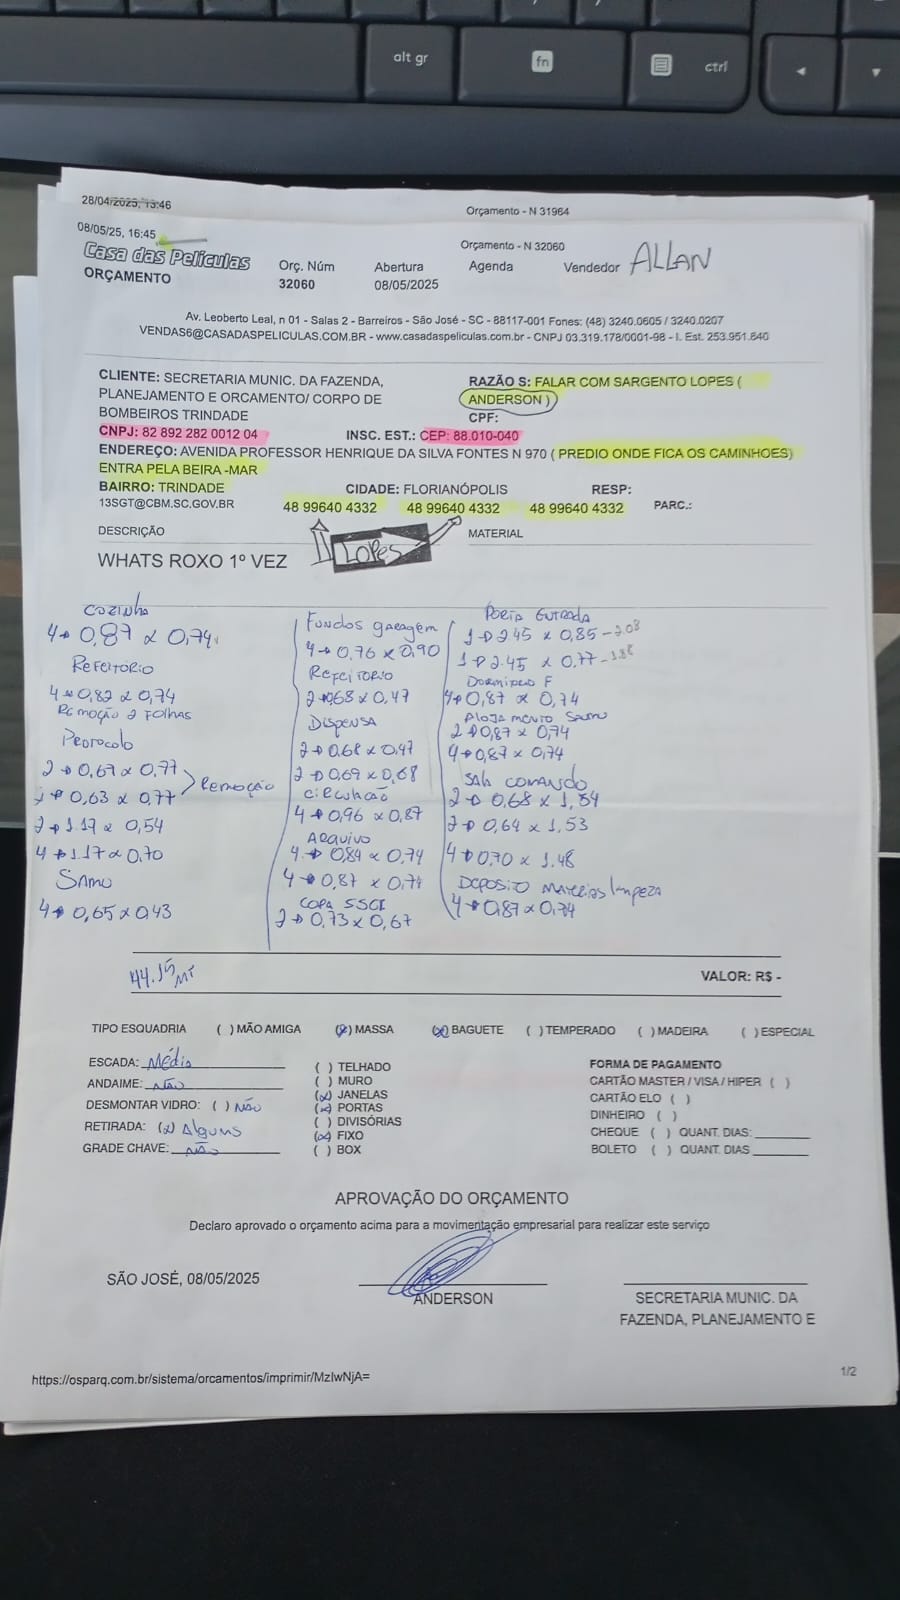 alt gr
fn
ctrl
28/04/2025, 13:46
Orçamento - N 31964
08/05/25, 16:45
Orçamento - N 32060
Casa das Películas
ORÇAMENTO
Orç. Núm
32060
Abertura
08/05/2025
Agenda
Vendedor ALLAN
Av. Leoberto Leal, n 01 - Salas 2 - Barreiros - São José - SC - 88117-001 Fones: (48) 3240.0605 / 3240.0207
VENDAS6@CASADASPELICULAS.COM.BR - www.casadaspeliculas.com.br - CNPJ 03.319.178/0001-98 - I. Est. 253.951.640
CLIENTE: SECRETARIA MUNIC. DA FAZENDA,
PLANEJAMENTO E ORCAMENTO/ CORPO DE
BOMBEIROS TRINDADE
RAZÃO S: FALAR COM SARGENTO LOPES (
ANDERSON )
CPF:
CNPJ: 82 892 282 0012 04
INSC. EST.: CEP: 88.010-040
ENDEREÇO: AVENIDA PROFESSOR HENRIQUE DA SILVA FONTES N 970 ( PREDIO ONDE FICA OS CAMINHOES)
ENTRA PELA BEIRA -MAR
BAIRRO: TRINDADE
CIDADE: FLORIANÓPOLIS
RESP:
13SGT@CBM.SC.GOV.BR
48 99640 4332
48 99640 4332
48 99640 4332
PARC.:
DESCRIÇÃO
MATERIAL
WHATS ROXO 1º VEZ
LOPES
COZINHA
4→ 0,87 x 0,74
REFEITÓRIO
4→ 0,82 x 0,74
REMOÇÃO 2 FOLHAS
PROTOCOLO
2→ 0,67 x 0,77
2→ 0,63 x 0,77
REMOÇÃO
2→ 1.17 x 0,54
4→ 1.17 x 0,70
SAMU
4→ 0,65 x 0,43
FUNDOS garagem
4→ 0,76 x 0,90
REFEITORIO
2→ 0,68 x 0,47
DISPENSA
2→ 0,68 x 0,47
2→ 0,69 x 0,68
CIRCULAÇÃO
4→ 0,96 x 0,87
ARQUIVO
4→ 0,84 x 0,74
4→ 0,87 x 0,74
COPA SSCI
2→ 0,73 x 0,67
PORTA ENTRADA
1→ 2.45 x 0,85 - 2.08
1→ 2.45 x 0,77 - 1.88
DORMITÓRIO F
4→ 0,87 x 0,74
ALOJAMENTO SAMU
2→ 0,87 x 0,74
4→ 0,87 x 0,74
SALA COMANDO
2→ 0,68 x 1,54
2→ 0,64 x 1,53
4→ 0,70 x 1.48
DEPOSITO MATERIAS limpeza
4→ 0,87 x 0,74
44.15 M²
VALOR: R$ -
TIPO ESQUADRIA
( ) MÃO AMIGA
(x) MASSA
(x) BAGUETE
( ) TEMPERADO
( ) MADEIRA
( ) ESPECIAL
ESCADA: Média
ANDAIME: NÃO
DESMONTAR VIDRO: ( ) NÃO
RETIRADA: (x) Alguns
GRADE CHAVE: NÃO
( ) TELHADO
( ) MURO
(x) JANELAS
(x) PORTAS
( ) DIVISÓRIAS
(x) FIXO
( ) BOX
FORMA DE PAGAMENTO
CARTÃO MASTER / VISA / HIPER ( )
CARTÃO ELO ( )
DINHEIRO ( )
CHEQUE ( ) QUANT. DIAS:
BOLETO ( ) QUANT. DIAS
APROVAÇÃO DO ORÇAMENTO
Declaro aprovado o orçamento acima para a movimentação empresarial para realizar este serviço
SÃO JOSÉ, 08/05/2025
ANDERSON
SECRETARIA MUNIC. DA
FAZENDA, PLANEJAMENTO E
https://osparq.com.br/sistema/orcamentos/imprimir/MzIwNjA=
1/2